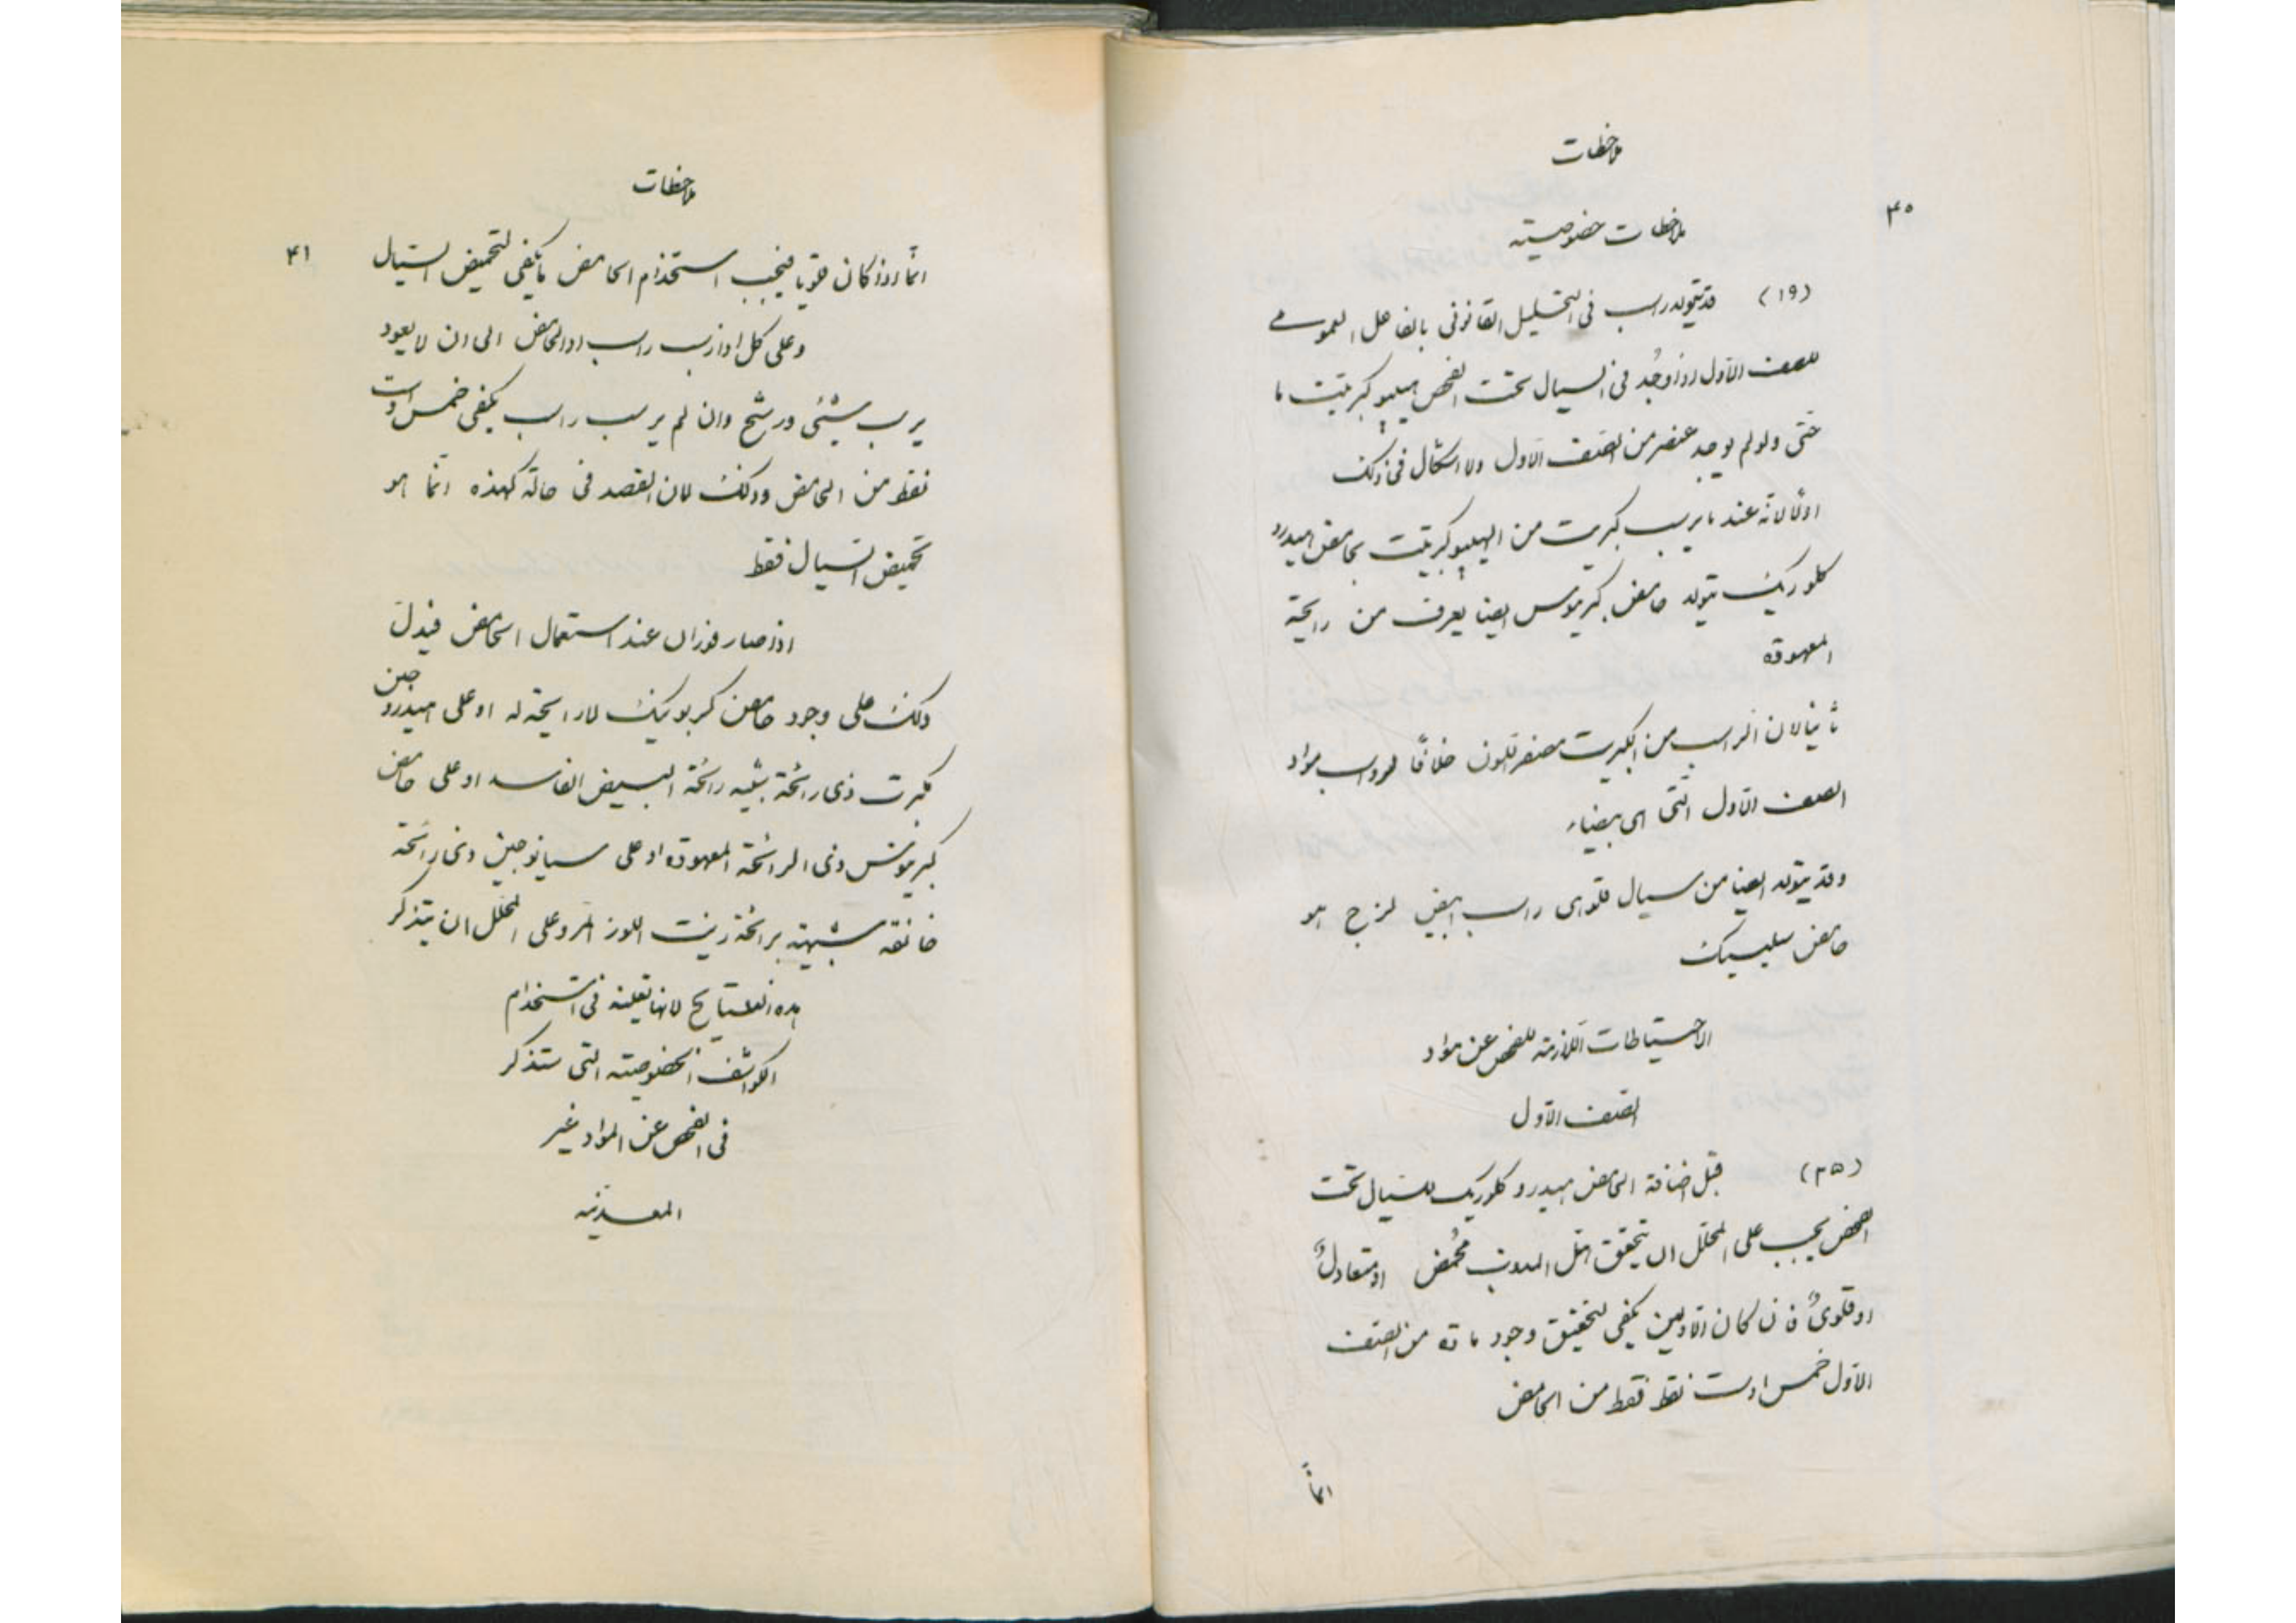 ملاحظات
٤٠
ملاحظات خصوصية
(١٩) قد يتولد راسب فى التحليل القانونى بالفاعل العمومى
للصنف الاول اذا وجد فى السيال تحت الفحص هيپوكبريتيت ما
حتى ولو لم يوجد عنصر من الصنف الاول ولا اشكال فى ذلك
اولا لانه عند ما يرسب كبريت من الهيپوكبريتيت بحامض هيدرو
كلوريك يتولد حامض كبريتوس ايضا يعرف من رايحته
المعهودة
ثانيا لان الراسب من الكبريت مصفر اللون خلافا لرواسب مواد
الصنف الاول التى هى بيضاء
وقد يتولد ايضا من سيال قلوى راسب ابيض لزج هو
حامض سليسيك
الاحتياطات اللازمة للفحص عن مواد
الصنف الاول
(٣٥) قبل اضافة الحامض هيدروكلوريك للسيال تحت
الفحص يجب على المحلل ان يتحقق هل المذوب محمض او متعادل
او قلوى فان كان الاولين يكفى لتحقيق وجود مادة من الصنف
الاول خمس او ست نقط فقط من الحامض
انما
ملاحظات
٤١
انما اذا كان قلويا فيجب استخدام الحامض ما يكفى لتحميض السيال
وعلى كل اذا رسب راسب زد الحامض الى ان لا يعود
يرسب شيئى ورشح وان لم يرسب راسب يكفى خمس او ست
نقط من الحامض وذلك لان القصد فى حالة كهذه انما هو
تحميض السيال فقط
اذا صار فوران عند استعمال الحامض فيدل
ذلك على وجود حامض كربونيك لا رايحة له او على هيدروجين
كبرت ذى رائحة شبيه رائحة البيض الفاسد او على حامض
كبريتوس ذى الرائحة المعهودة او على سيانوجين ذى رائحة
خانقه شبيهة برائحة زيت اللوز المر وعلى المحلل ان يتذكر
هذه النتايج لانها تعينه فى استخدام
الكواشف الخصوصية التى ستذكر
فى الفحص عن المواد غير
المعدنية